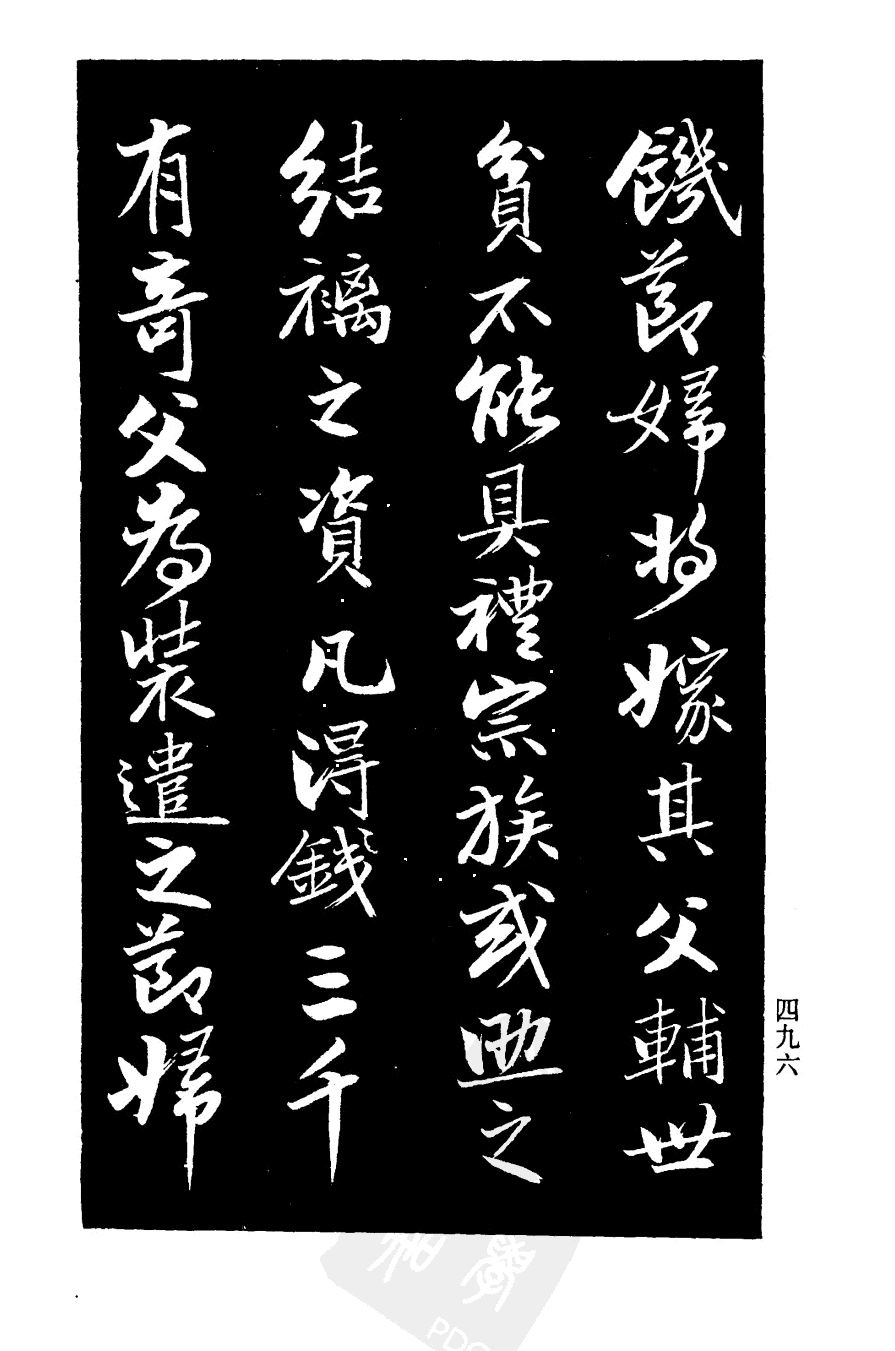 饑節婦将嫁其父輔世
貧不能具禮宗族或助之
結褵之資凡得錢三千
有奇父為裝遣之節婦
四九六